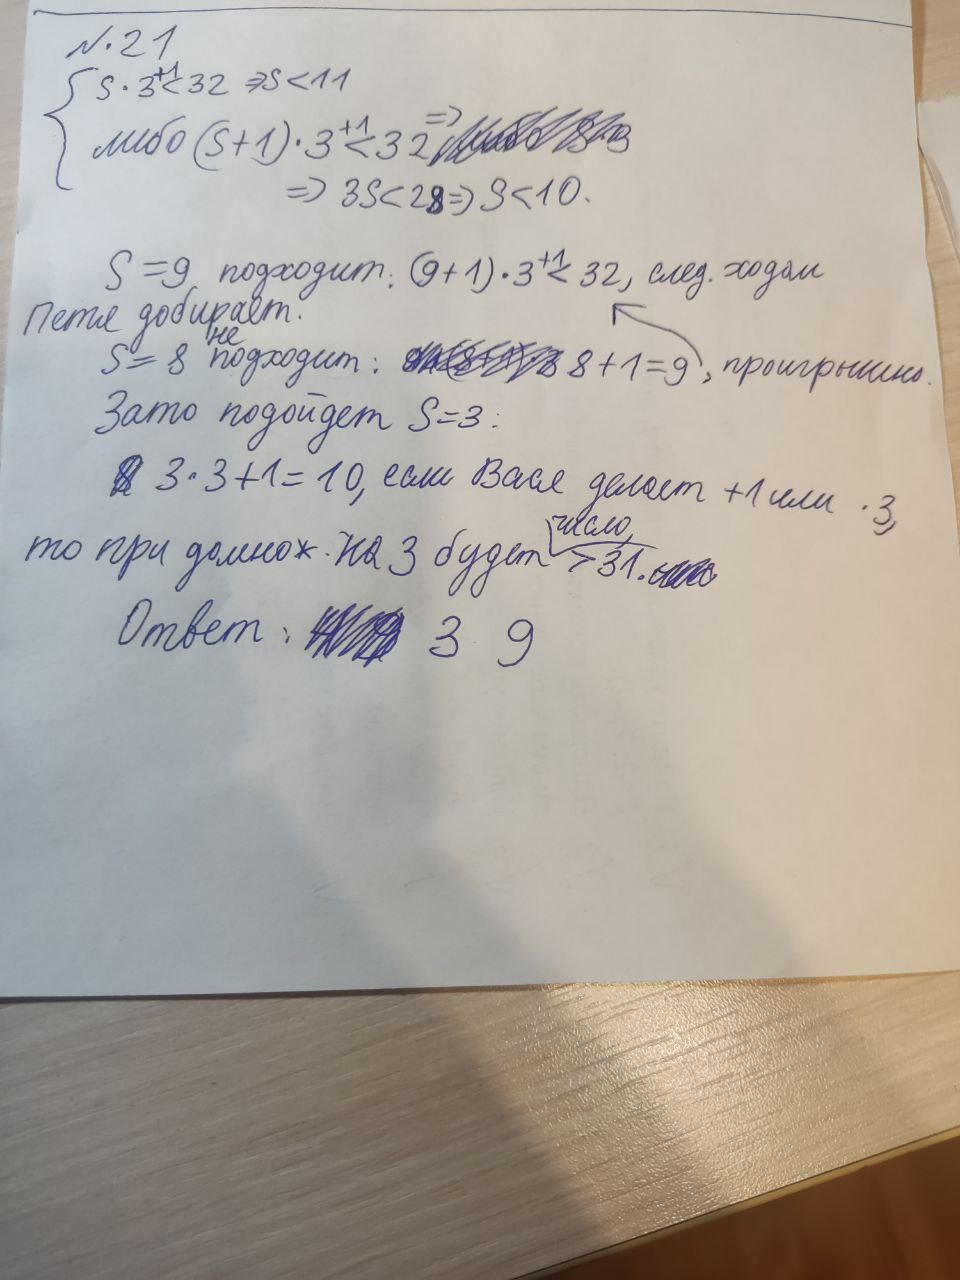 N.21
S·3+1<32 ⇒S<11
либо (S+1)·3+1<32 ⇒
⇒ 3S<28⇒ S<10.
S=9 подходит: (9+1)·3+1< 32, след. ходом
Петя добирает.
S=8 не подходит: 8+1=9, проигрышно.
Зато подойдет S=3:
3·3+1=10, если Вася делает +1 или ·3,
то при домнож. на 3 будет число, >31.
Ответ: 3 9